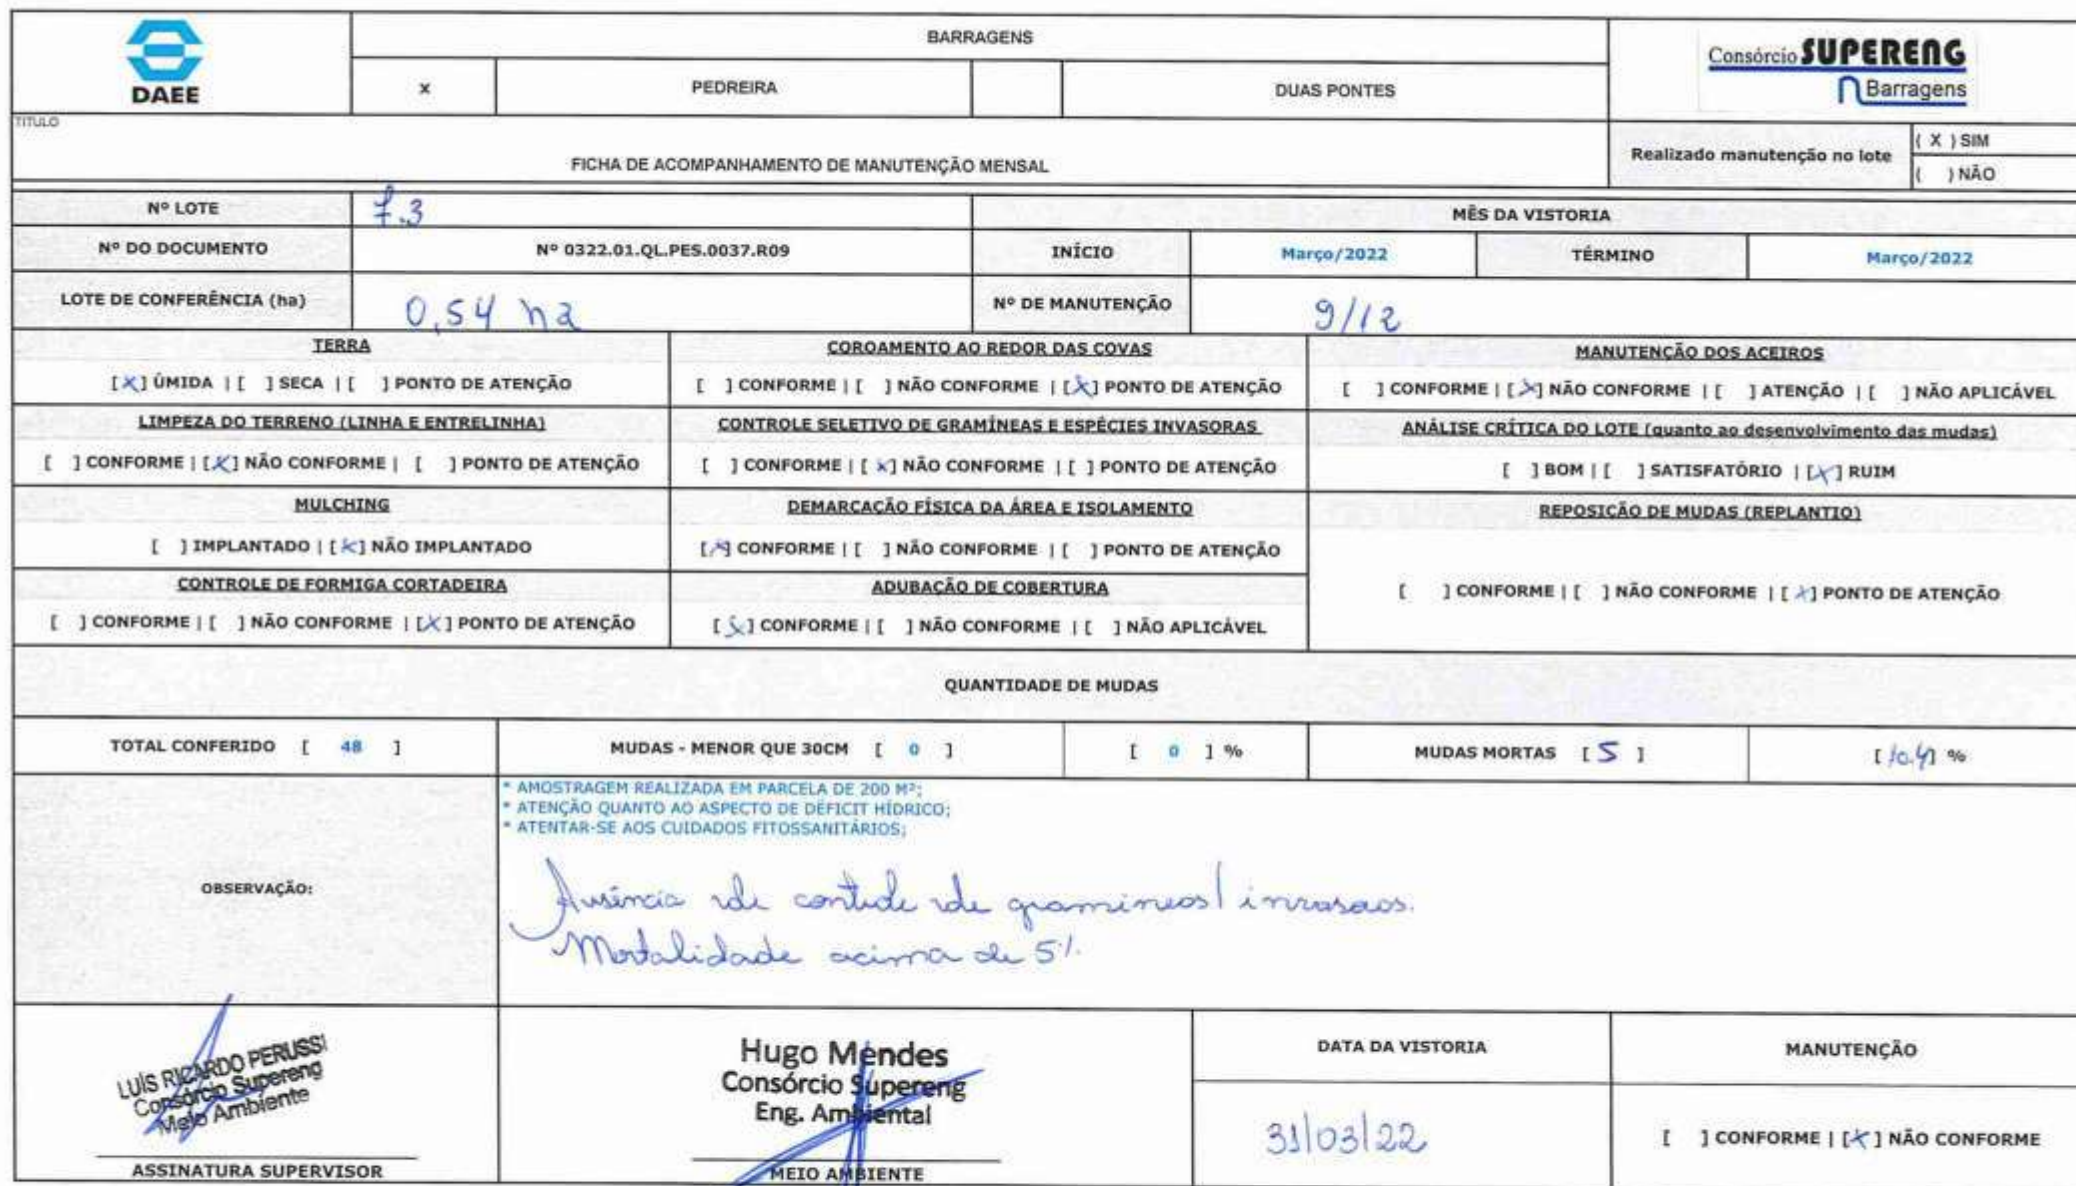 DAEE
BARRAGENS
x PEDREIRA DUAS PONTES
Consórcio SUPERENG
Barragens
TITULO
FICHA DE ACOMPANHAMENTO DE MANUTENÇÃO MENSAL
Realizado manutenção no lote
( X ) SIM
( ) NÃO
Nº LOTE 7.3 MÊS DA VISTORIA
Nº DO DOCUMENTO Nº 0322.01.QL.PES.0037.R09 INÍCIO Março/2022 TÉRMINO Março/2022
LOTE DE CONFERÊNCIA (ha) 0,54 ha Nº DE MANUTENÇÃO 9/12
TERRA
[X] ÚMIDA | [ ] SECA | [ ] PONTO DE ATENÇÃO
COROAMENTO AO REDOR DAS COVAS
[ ] CONFORME | [ ] NÃO CONFORME | [X] PONTO DE ATENÇÃO
MANUTENÇÃO DOS ACEIROS
[ ] CONFORME | [X] NÃO CONFORME | [ ] ATENÇÃO | [ ] NÃO APLICÁVEL
LIMPEZA DO TERRENO (LINHA E ENTRELINHA)
[ ] CONFORME | [X] NÃO CONFORME | [ ] PONTO DE ATENÇÃO
CONTROLE SELETIVO DE GRAMÍNEAS E ESPÉCIES INVASORAS
[ ] CONFORME | [X] NÃO CONFORME | [ ] PONTO DE ATENÇÃO
ANÁLISE CRÍTICA DO LOTE (quanto ao desenvolvimento das mudas)
[ ] BOM | [ ] SATISFATÓRIO | [X] RUIM
MULCHING
[ ] IMPLANTADO | [X] NÃO IMPLANTADO
DEMARCAÇÃO FÍSICA DA ÁREA E ISOLAMENTO
[X] CONFORME | [ ] NÃO CONFORME | [ ] PONTO DE ATENÇÃO
REPOSIÇÃO DE MUDAS (REPLANTIO)
[ ] CONFORME | [ ] NÃO CONFORME | [X] PONTO DE ATENÇÃO
CONTROLE DE FORMIGA CORTADEIRA
[ ] CONFORME | [ ] NÃO CONFORME | [X] PONTO DE ATENÇÃO
ADUBAÇÃO DE COBERTURA
[X] CONFORME | [ ] NÃO CONFORME | [ ] NÃO APLICÁVEL
QUANTIDADE DE MUDAS
TOTAL CONFERIDO [ 48 ] MUDAS - MENOR QUE 30CM [ 0 ] [ 0 ] % MUDAS MORTAS [ 5 ] [10.4] %
OBSERVAÇÃO:
* AMOSTRAGEM REALIZADA EM PARCELA DE 200 M²;
* ATENÇÃO QUANTO AO ASPECTO DE DÉFICIT HÍDRICO;
* ATENTAR-SE AOS CUIDADOS FITOSSANITÁRIOS;
Ausência de controle de gramíneas/ invasoras.
Mortalidade acima de 5%
LUÍS RICARDO PERUSSI
Consórcio Supereng
Meio Ambiente
ASSINATURA SUPERVISOR
Hugo Mendes
Consórcio Supereng
Eng. Ambiental
MEIO AMBIENTE
DATA DA VISTORIA
31/03/22
MANUTENÇÃO
[ ] CONFORME | [X] NÃO CONFORME